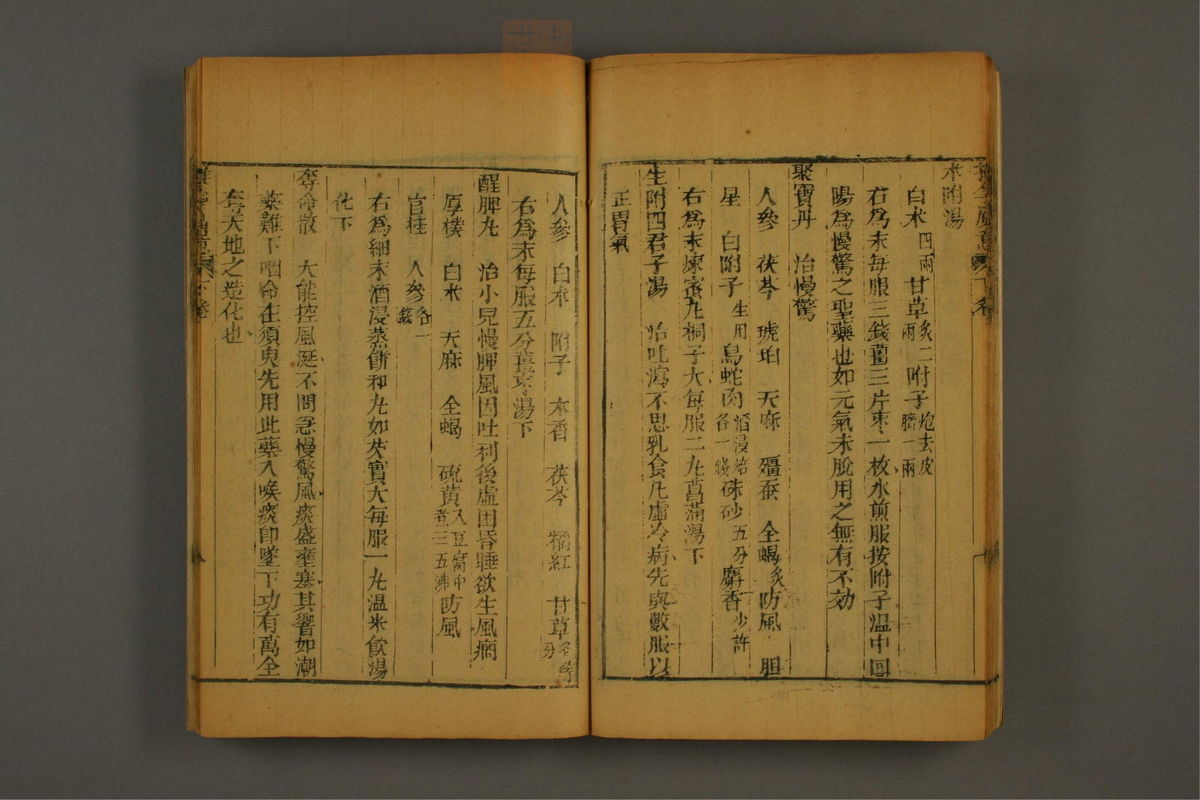 术附湯
白术四兩 甘草炙二兩 附子炮去皮臍一兩
右為末每服三錢薑三片棗一枚水煎服按附子温中回
陽為慢驚之聖藥也如元氣未脫用之無有不効
聚寶丹 治慢驚
人參 茯苓 琥珀 天麻 殭蚕 全蝎炙 防風 胆
星 白附子生用 烏蛇肉酒浸焙各一錢 硃砂五分 麝香少許
右為末煉蜜丸桐子大每服二丸菖蒲湯下
生附四君子湯 治吐瀉不思乳食凡虛冷病先與數服以
正胃氣
人參 白术 附子 木香 茯苓 橘紅 甘草各等分
右為末每服五分薑棗湯下
醒脾丸 治小兒慢脾風因吐利後虛困昏睡欲生風癇
厚樸 白术 天麻 全蝎 硫黄入豆腐中煮三五沸 防風
官桂 人參各一錢
右為細末酒浸蒸餅和丸如芡實大每服一丸温米飲湯
化下
奪命散 大能控風涎不問急慢驚風痰盛壅塞其響如潮
藥難下咽命在須臾先用此藥入喉痰即墜下功有萬全
奪天地之造化也